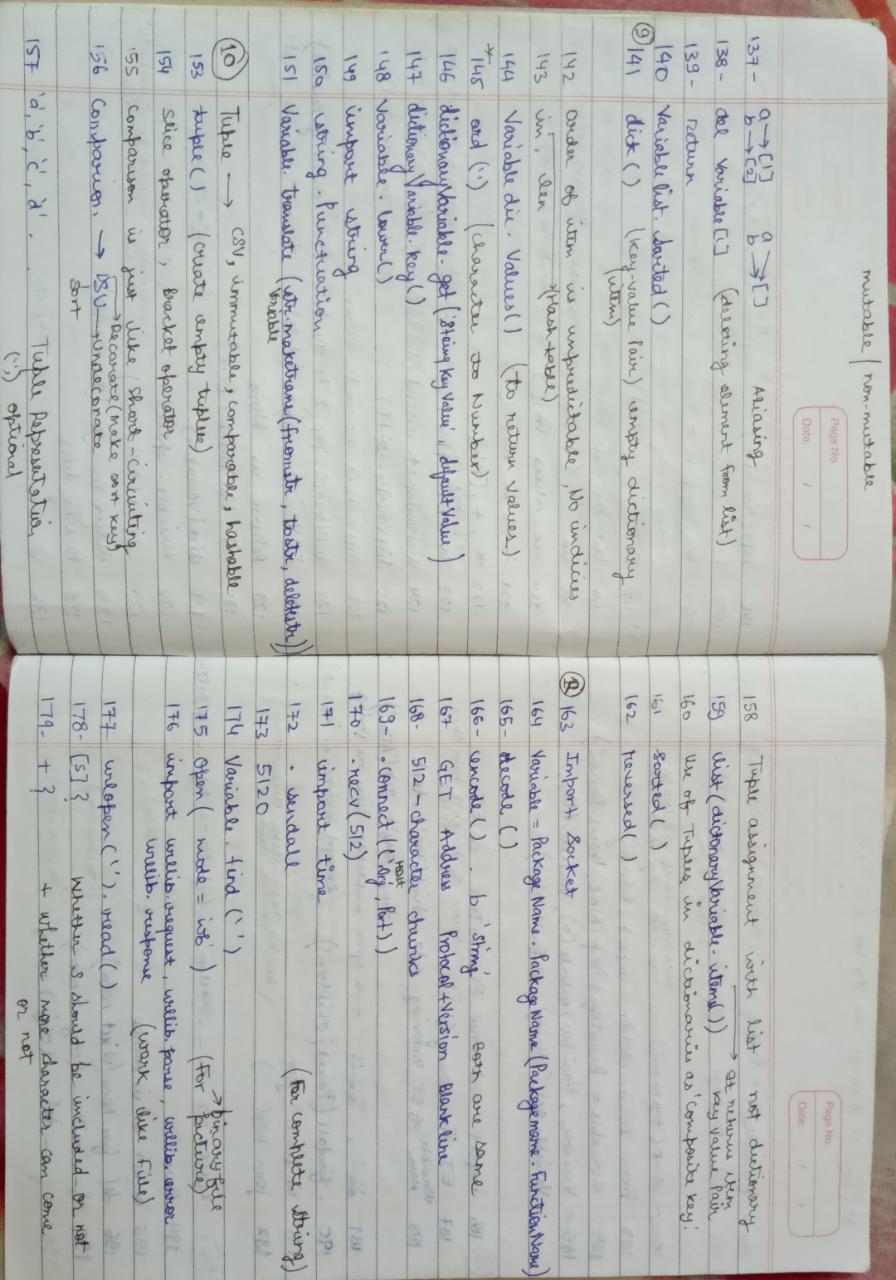 mutable / non-mutable
Page No.
Date. / /
137- a → [1] a
b → [2] b → [] Aliasing
138- del variable[i] (deleting element from list)
139- return
140 Variable list. sorted ()
9 141 dict () (key-value Pair) empty dictionary
(item)
142 order of item is unpredictable, No indicies
143 in, len → (Hash-table)
144 Variable dic. Values() (to return values)
145 ord (';') (character to Number)
146 dictionary Variable. get ('String key value', default value)
147 dictionary Variable. key()
148 Variable. lower()
149 import string
150 string. punctuation
151 Variable. translate (str. maketrans (fromstr, tostr, deletestr))
Variable
10 Tuple → CSV, immutable, comparable, hashable
153 tuple() - (create empty tuplue)
154 Slice operator, Bracket operator
155 Comparison is just like short-circuiting
→ Decorate (make sort key)
156 Comparison. → DSU → Undecorate
Sort
157 'a', 'b', 'c', 'd'. Tuple Representation
(',') optional
Page No.
Date. / /
158 Tuple assignment with list not dictionary
159 list (dictonary Variable. items()) → It returns item
key value Pair
160 Use of Tuples in dictionaries as 'composite key'
161 Sorted()
162 reversed()
163 Import Socket
164 Variable = Package Name. Package Name (Package meme. Function Name)
165- decode ()
166- encode() . b 'string' Both are same
167 GET Address Protocol + Version Blank line
168- 512 - character chunks
169- .connect (('Org', Port))
Host
170. .recv (512)
171 import time
172 . sendall (For complete string)
173 5120
174 Variable. find (' ')
→ binary file
175 open( mode = 'wb' ) (For picture)
176 import urllib. request, urllib. parse, urllib. error
urllib. response (work like File)
177 urlopen(' '). read()
178- [s]? Whether s should be included or not
179- + ? + whether more character can come
or not